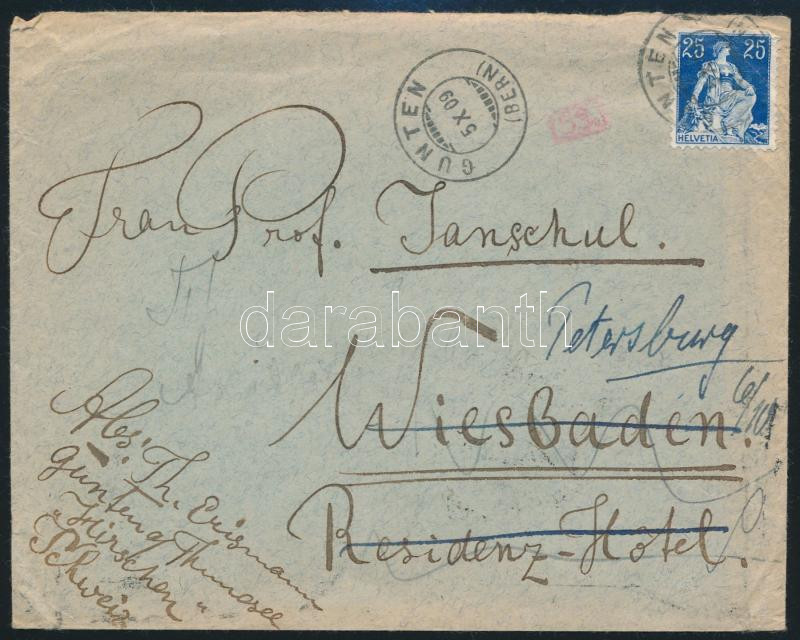 25 25
HELVETIA
GUNTEN
(BERN)
5 X 09
Frau Prof. Janschul.
Petersburg
Wiesbaden.
Residenz-Hôtel.
Abs: Th. Erismann
Gunten a/ Thunersee
"Hirschen"
Schweiz
darabanth